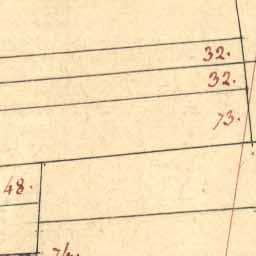 32.
32.
73.
48.